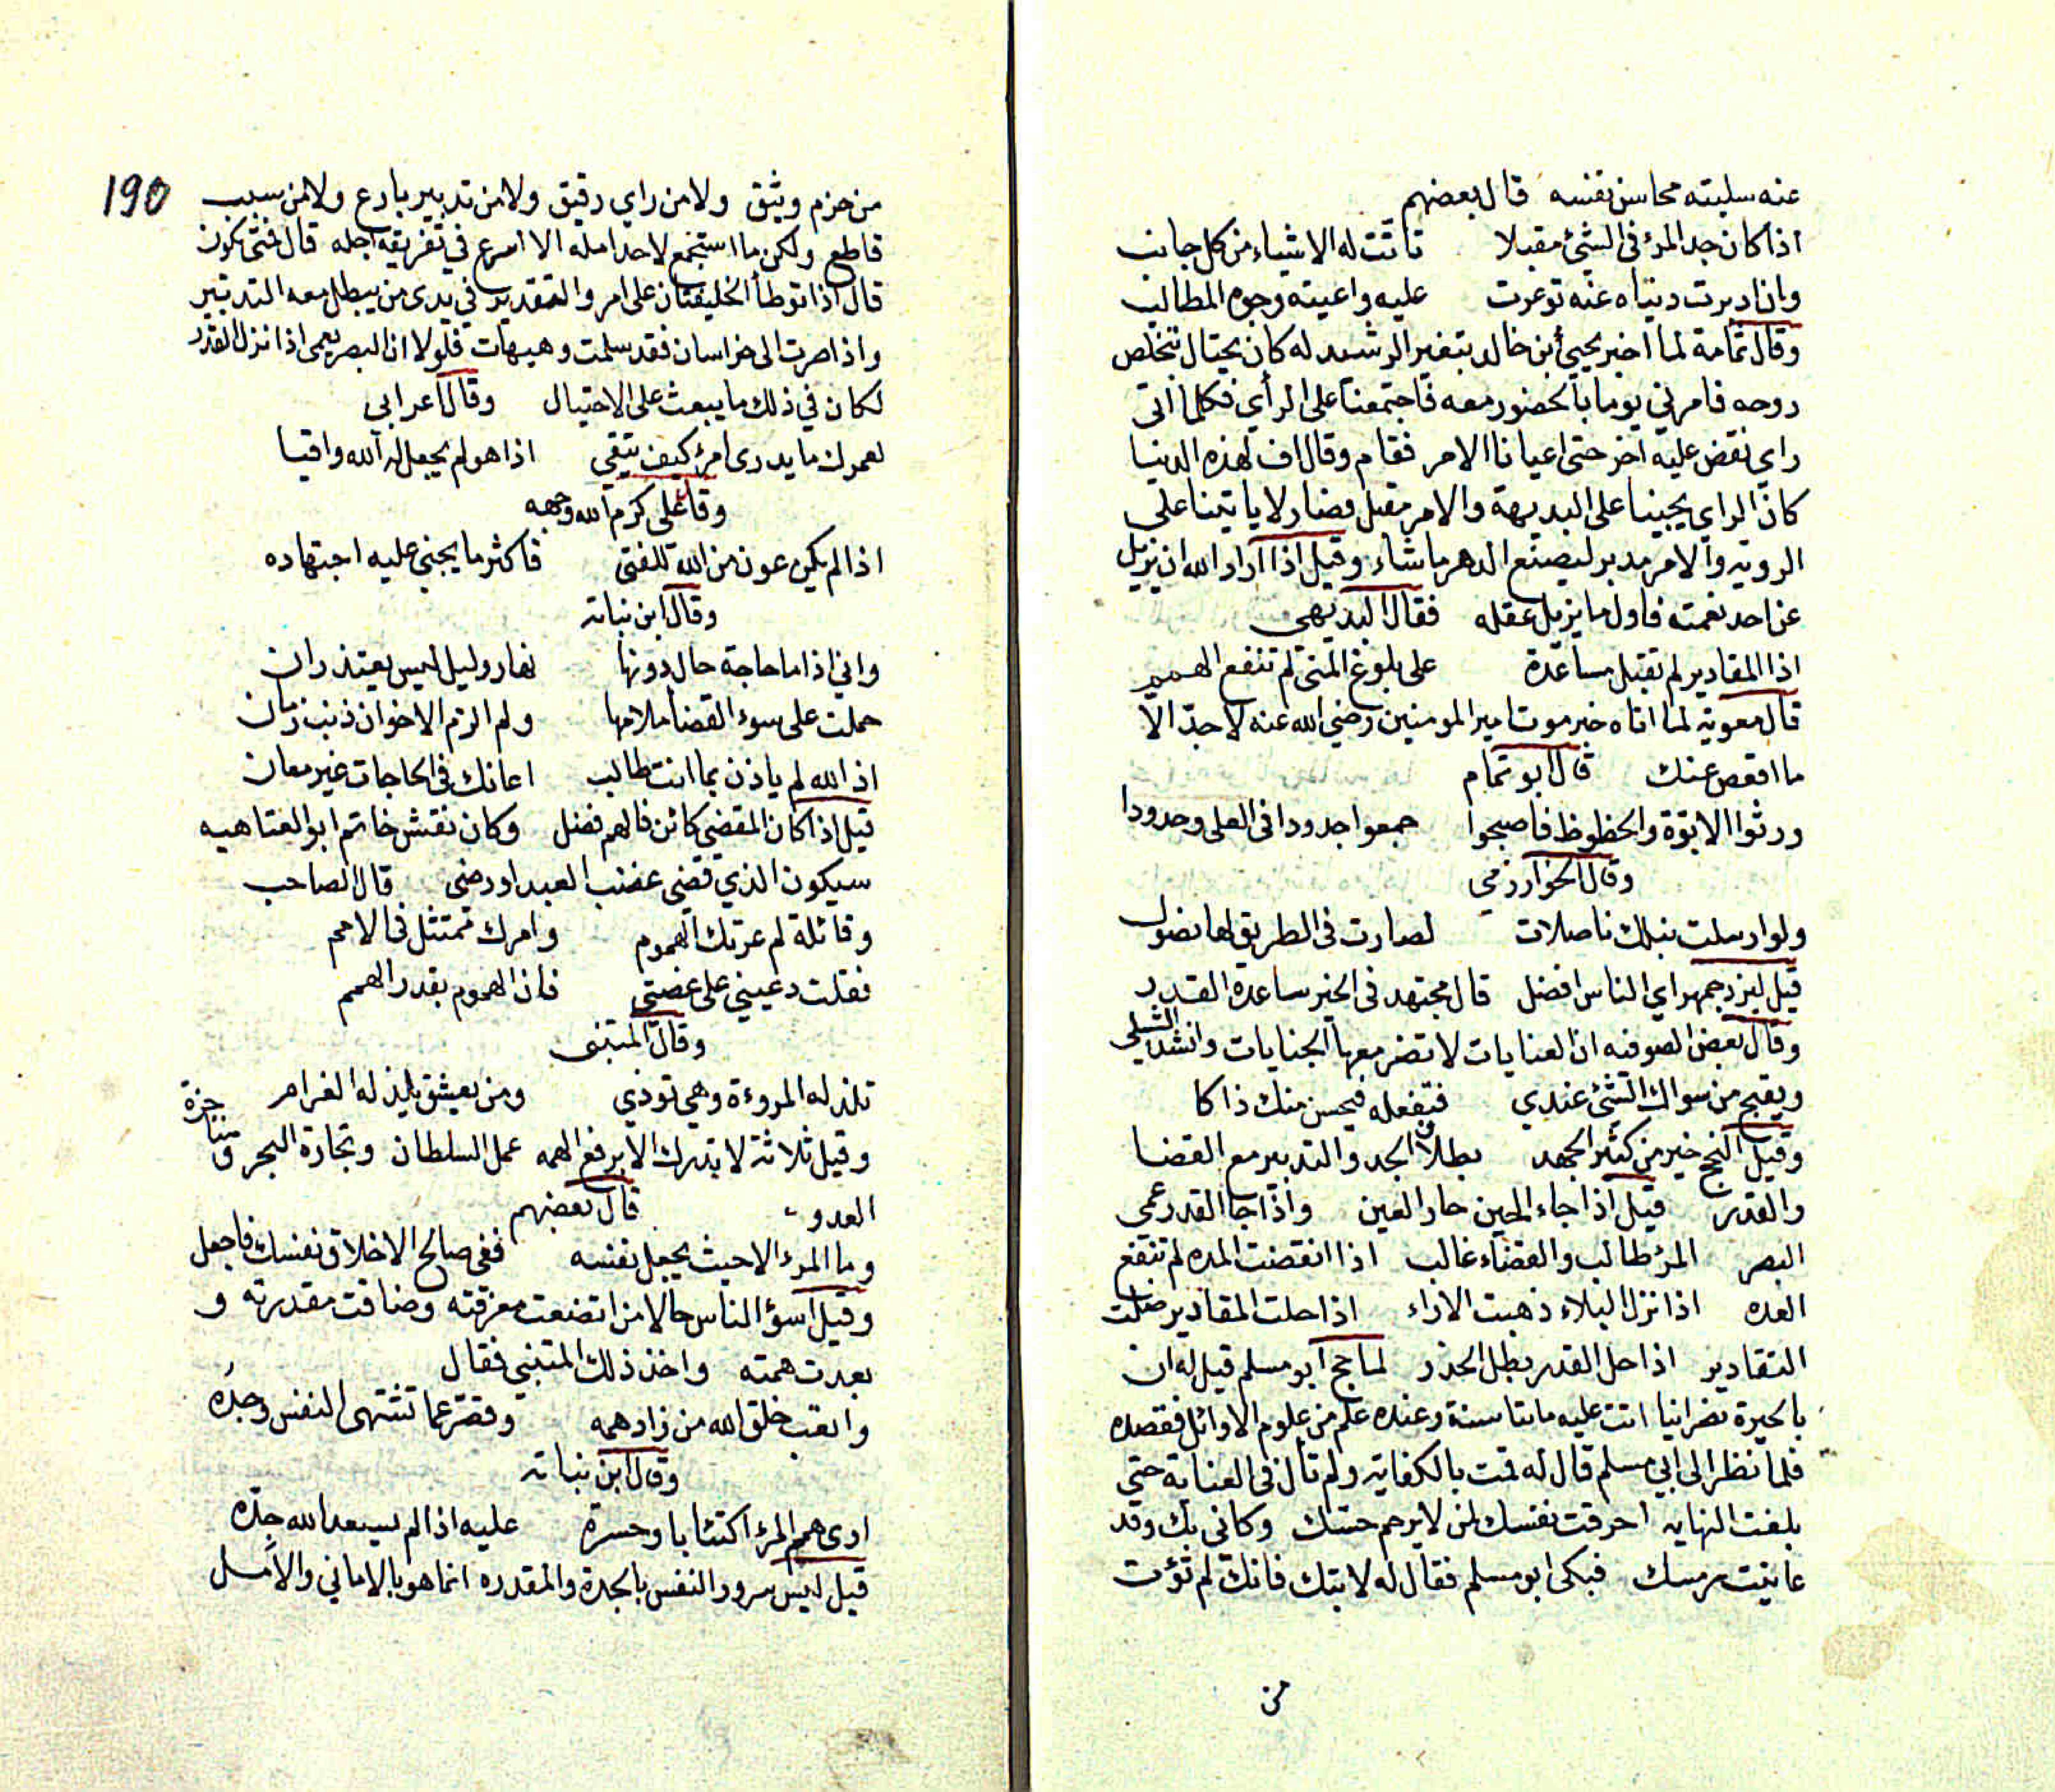 عنه سلبته محاسن نفسه قال بعضهم
اذا كان جد المرء فى الشئ مقبلا تأتت له الاشياء من كل جانب
وان ادبرت دنياه عنه توعرت عليه واعيته وجوه المطالب
وقال ثمامة لما اخبر يحيى بن خالد بتغير الرشيد له كان يحتال بتخلص
روحه فامرني يوما بالحضور معه فاجتمعنا على الرأي فكلما اتى
راي نقض عليه اخر حتى اعيانا الامر فقام وقال اف لهذه الدنيا
كان الراي يجيبنا على البديهة والامر مقبل فصار لا ياتينا على
الرويه والامر مدبر ليصنع الدهر ما شاء وقيل اذا اراد الله ان يزيل
عن احد نعمته فاول ما يزيل عقله فقال البديهى
اذا المقادير لم تقبل مساعدة على بلوغ المنى لم تنفع الهمم
قال معوية لما اتاه خبر موت امير المومنين رضي الله عنه لا جدّ الا
ما اقعص عنك قال ابو تمام
ورثوا الابوة والحظوظ فاصبحوا جمعوا جدودا فى العلى وجدودا
وقال الخوارزمي
ولو ارسلت نبلك ناصلات لصارت فى الطريق لها نصول
قيل لبزرجمهر اي الناس افضل قال مجتهد فى الخير ساعده القدر
وقال بعض الصوفيه ان العنايات لا تضر معها الجنايات وانشد الشبلي
ويقبح من سواك الشئ عندي فتفعله فيحسن منك ذاكا
وقيل النجح خير من كثير الجهد بطلان الجد والتدبير مع القضا
والقدر قيل اذا جاء الحين حار العين واذا جا القدر عمى
البصر المرء طالب والقضاء غالب اذا انقضت المده لم تنفع
العده اذا نزل البلاء ذهبت الاراء اذا حلت المقادير ضلت
التقادير اذا حل القدر بطل الحذر لما حج ابو مسلم قيل له ان
بالحيرة نصرانيا اتت عليه مايتا سنة وعنده علم من علوم الاوائل فقصده
فلما نظر الى ابي مسلم قال له قمت بالكفاية ولم تأل فى العناية حتى
بلغت النهايه احرقت نفسك لمن لا يرحم حسّك وكانى بك وقد
عاينت رمسك فبكى ابو مسلم فقال له لا تبك فانك لم تؤت
من
190
من حزم وثيق ولا من راي دقيق ولا من تدبير بارع ولا من سبب
قاطع ولكن ما استجمع لاحد امله الا اسرع في تفريقه اجله قال فمتى يكون
قال اذا توطأ الخليفتان على امر والتقدير في يدى من يبطل معه التدبير
واذا صرت الى خراسان فقد سلمت وهيهات فلولا ان البصر يعمى اذا نزل القدر
لكان في ذلك ما يبعث على الاحتيال وقال اعرابي
لعمرك ما يدرى امرؤ كيف يتقي اذا هو لم يجعل له الله واقيا
وقال على كرم الله وجهه
اذا لم يكن عون من الله للفتى فاكثر ما يجنى عليه اجتهاده
وقال ابن نباته
واني اذا ما حاجة حال دونها نهار وليل ليس يعتذران
حملت على سوء القضا ملامها ولم الزم الاخوان ذنب زمان
اذ الله لم ياذن بما انت طالب اعانك فى الحاجات غير معان
قيل اذا كان المقضى كائن فالهم فضل وكان نقش خاتم ابو العتاهيه
سيكون الذي قضى غضب العبد او رضى قال الصاحب
وقائلة لم عرتك الهموم وامرك ممتثل فى الامم
فقلت دعيني على غصتى فان الهموم بقدر الهمم
وقال المتنبى
تلذ له المروءة وهي تؤذي ومن يعشق يلذ له الغرام
وقيل ثلاثة لا يدرك الا برفع الهمه عمل السلطان وتجارة البحر ومناجزة
العدو قال بعضهم
وما المرء الا حيث يجعل نفسه ففى صالح الاخلاق نفسك فاجعل
وقيل اسوؤ الناس حالا من اتضعت معرفته وضاقت مقدرته و
بعدت همته واخذ ذلك المتنبي فقال
واتعب خلق الله من زاد همه وقصر عما تشتهى النفس وجده
وقال ابن نباته
ارى همم المرء اكتئابا وحسرة عليه اذا لم يسعد الله جدّه
قيل ليس سرور النفس بالجدة والمقدره انما هو بالاماني والامل